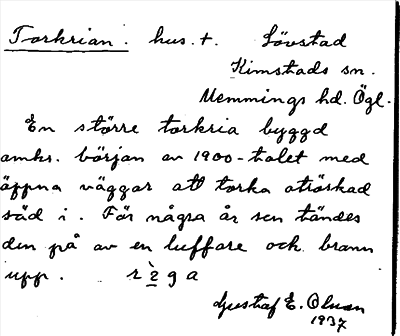 Torkrian. hus. t. Lövstad
Kimstads sn.
Memmings hd. Ögl.
En större torkria byggd
omkr. början av 1900-talet med
öppna väggar att torka otröskad
säd i. För några år sen tändes
den på av en luffare och brann
upp. r g a
Gustaf E. Olson
1937